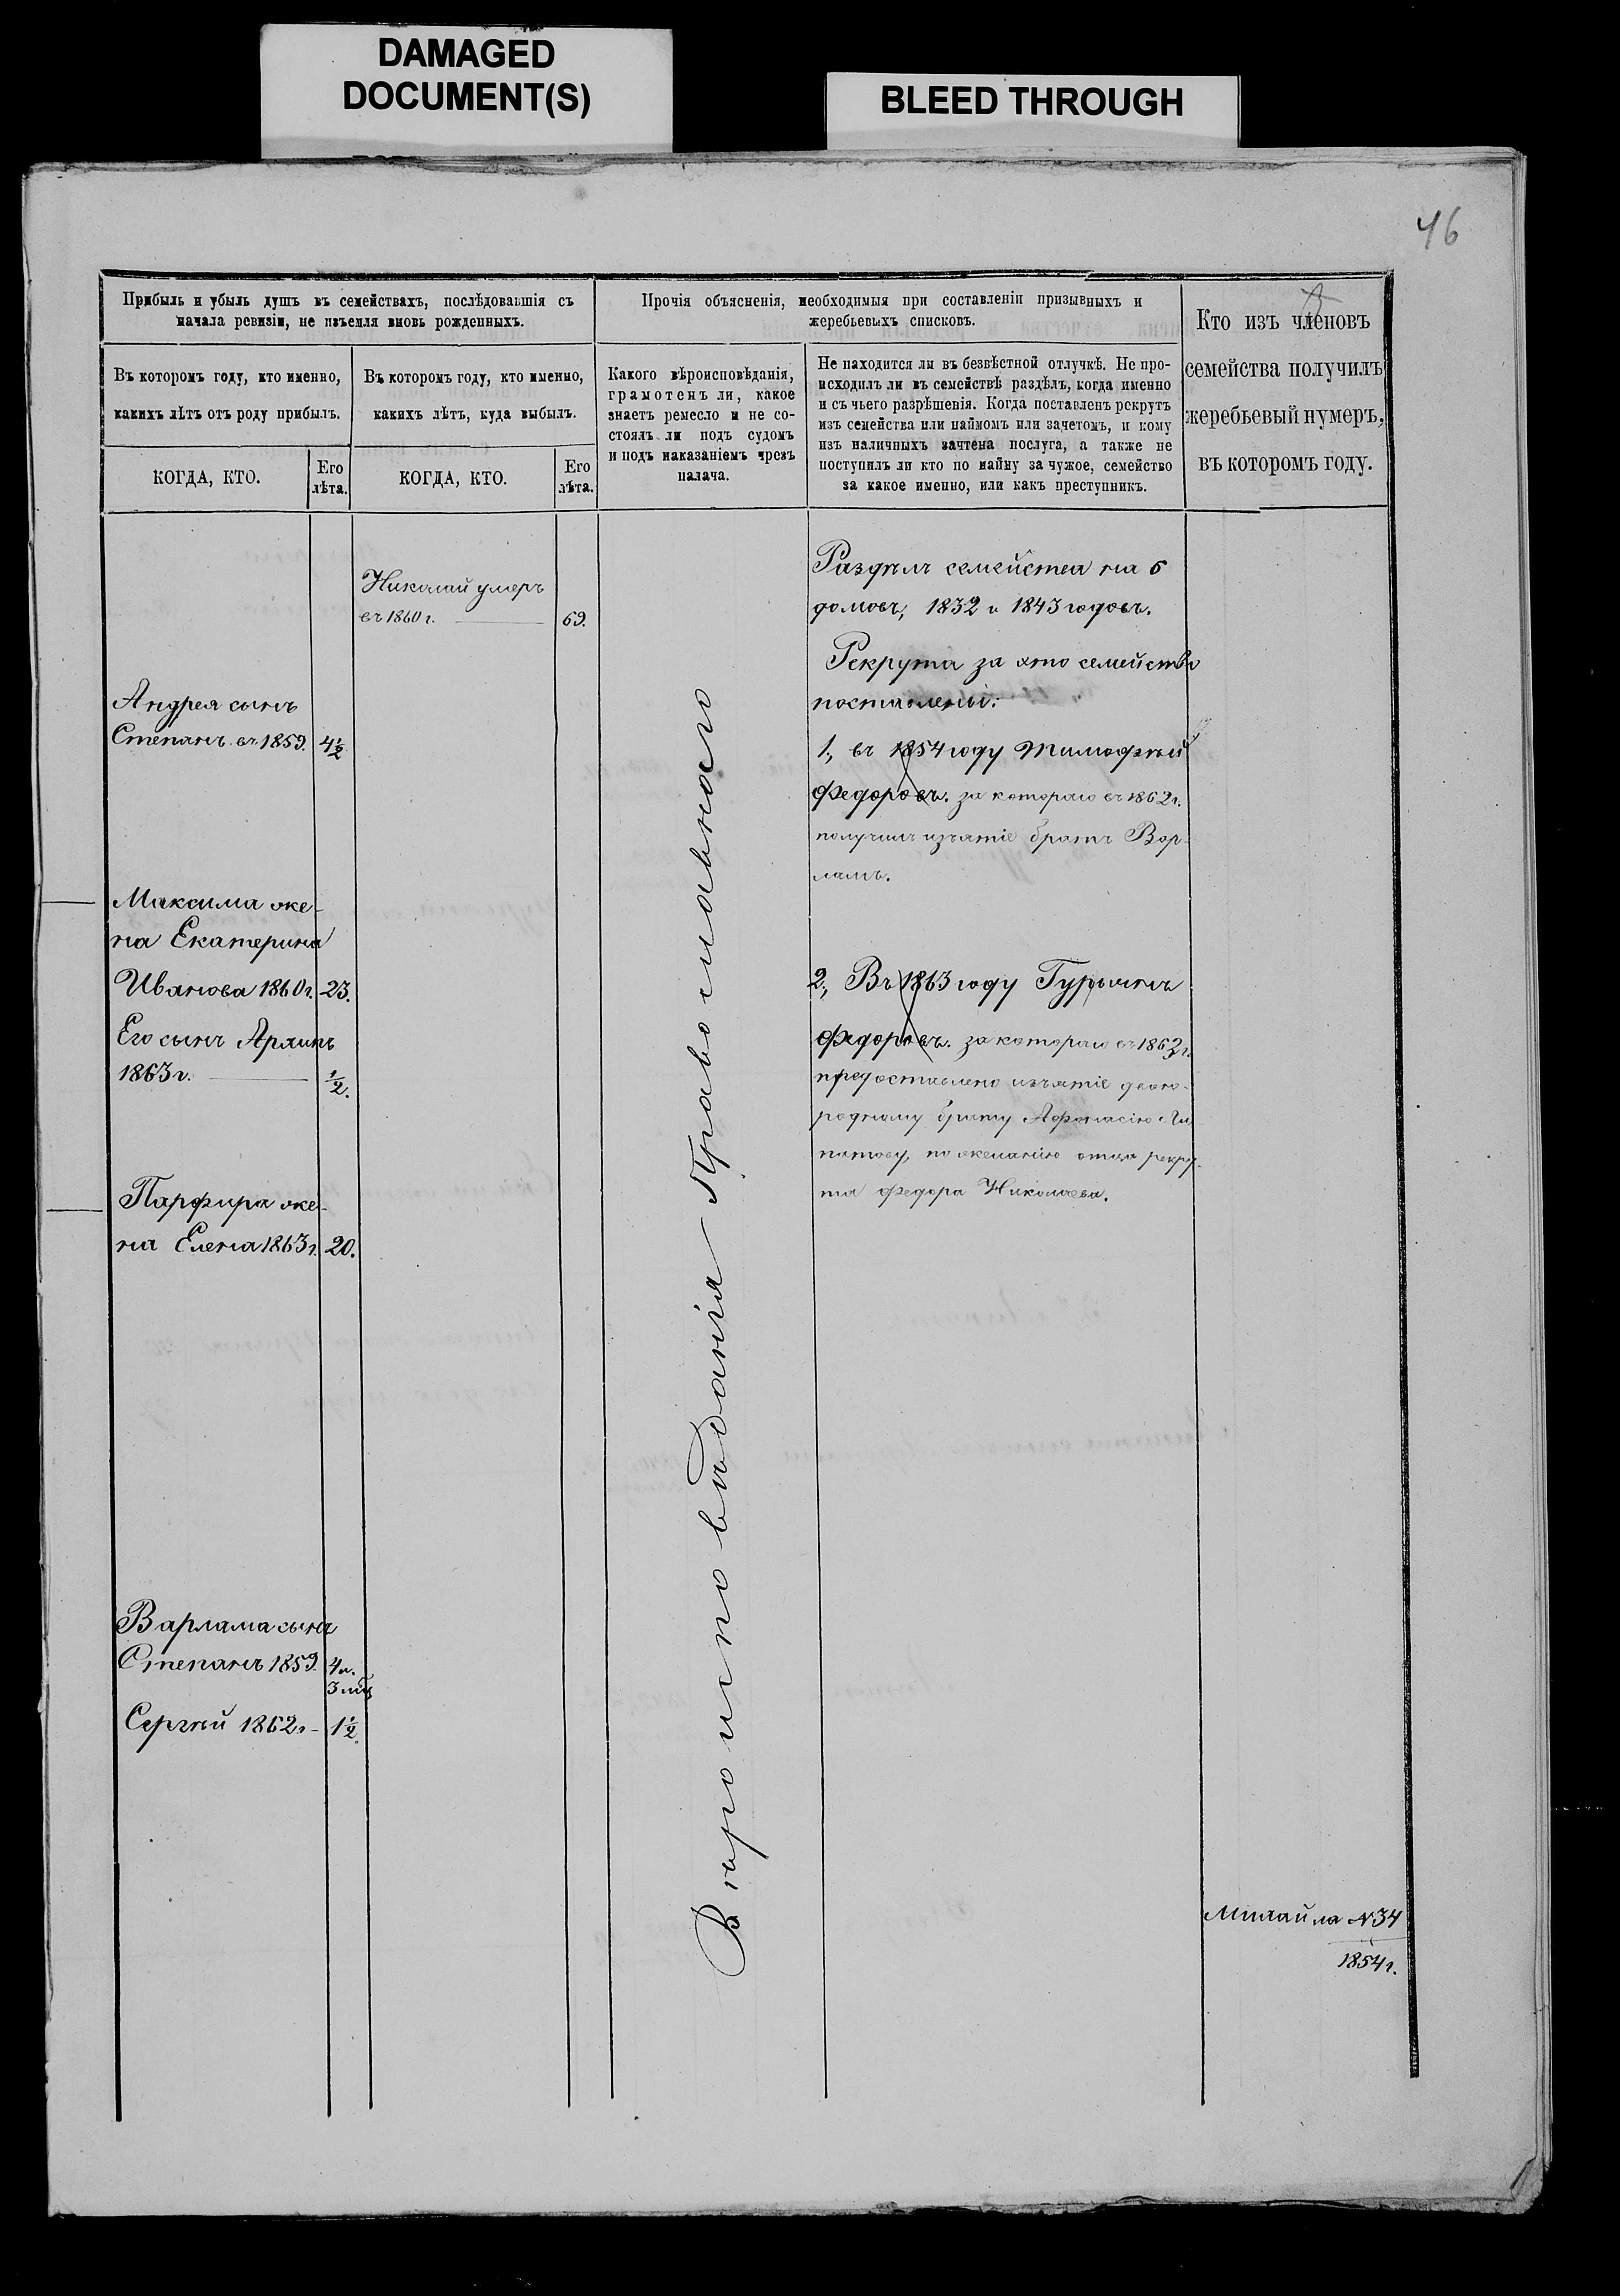 DAMAGED
DOCUMENT(S)
BLEED THROUGH
46
Прибыль и убыль душъ въ семействахъ, послѣдовавшія съ
начала ревизіи, не изъемля вновь рожденныхъ.
Въ которомъ году, кто именно,
какихъ лѣтъ отъ роду прибылъ.
КОГДА, КТО.
Его
лѣта.
Въ которомъ году, кто именно,
какихъ лѣтъ, куда выбылъ.
КОГДА, КТО.
Его
лѣта.
Прочія объясненія, необходимыя при составленіи призывныхъ и
жеребьевыхъ списковъ.
Какого вѣроисповѣданія,
грамотенъ ли, какое
знаетъ ремесло и не со-
стоялъ ли подъ судомъ
и подъ наказаніемъ чрезъ
палача.
Не находится ли въ безвѣстной отлучкѣ. Не про-
исходилъ ли въ семействѣ раздѣлъ, когда именно
и съ чьего разрѣшенія. Когда поставленъ рекрутъ
изъ семейства или наймомъ или зачетомъ, и кому
изъ наличныхъ зачтена послуга, а также не
поступилъ ли кто по найму за чужое, семейство
за какое именно, или какъ преступникъ.
Кто изъ членовъ
семейства получилъ
жеребьевый нумеръ,
въ которомъ году.
Андрея сынъ
Степанъ въ 1859. 4½
Максима же-
на Екатерина
Иванова 1860г. 23.
Его сынъ
1863г. ½.
Парфира же-
на Елена 1863г. 20.
Варлама сынъ
Степанъ 1859. 4л.
3 мѣ
Сергѣй 1862г. 1½.
Николай умеръ
въ 1860г. 69.
Вѣроисповѣданія Православнаго
Раздѣлъ семейства на 6
домовъ, 1832 и 1843 годовъ.
Рекрута за это семейство
поставлены:
1., въ 1854 году Тимофѣй
Федоровъ. за котораго въ 1862г.
получилъ изъятіе братъ Вар-
ламъ.
2., Въ 1863 году Гурьянъ
Федоровъ. за котораго въ 1863г.
предоставлено изъятіе двою-
родному брату Афанасію Ли-
патову, по желанію отца рекру-
та Федора Николаева.
Михайла №34
1854г.